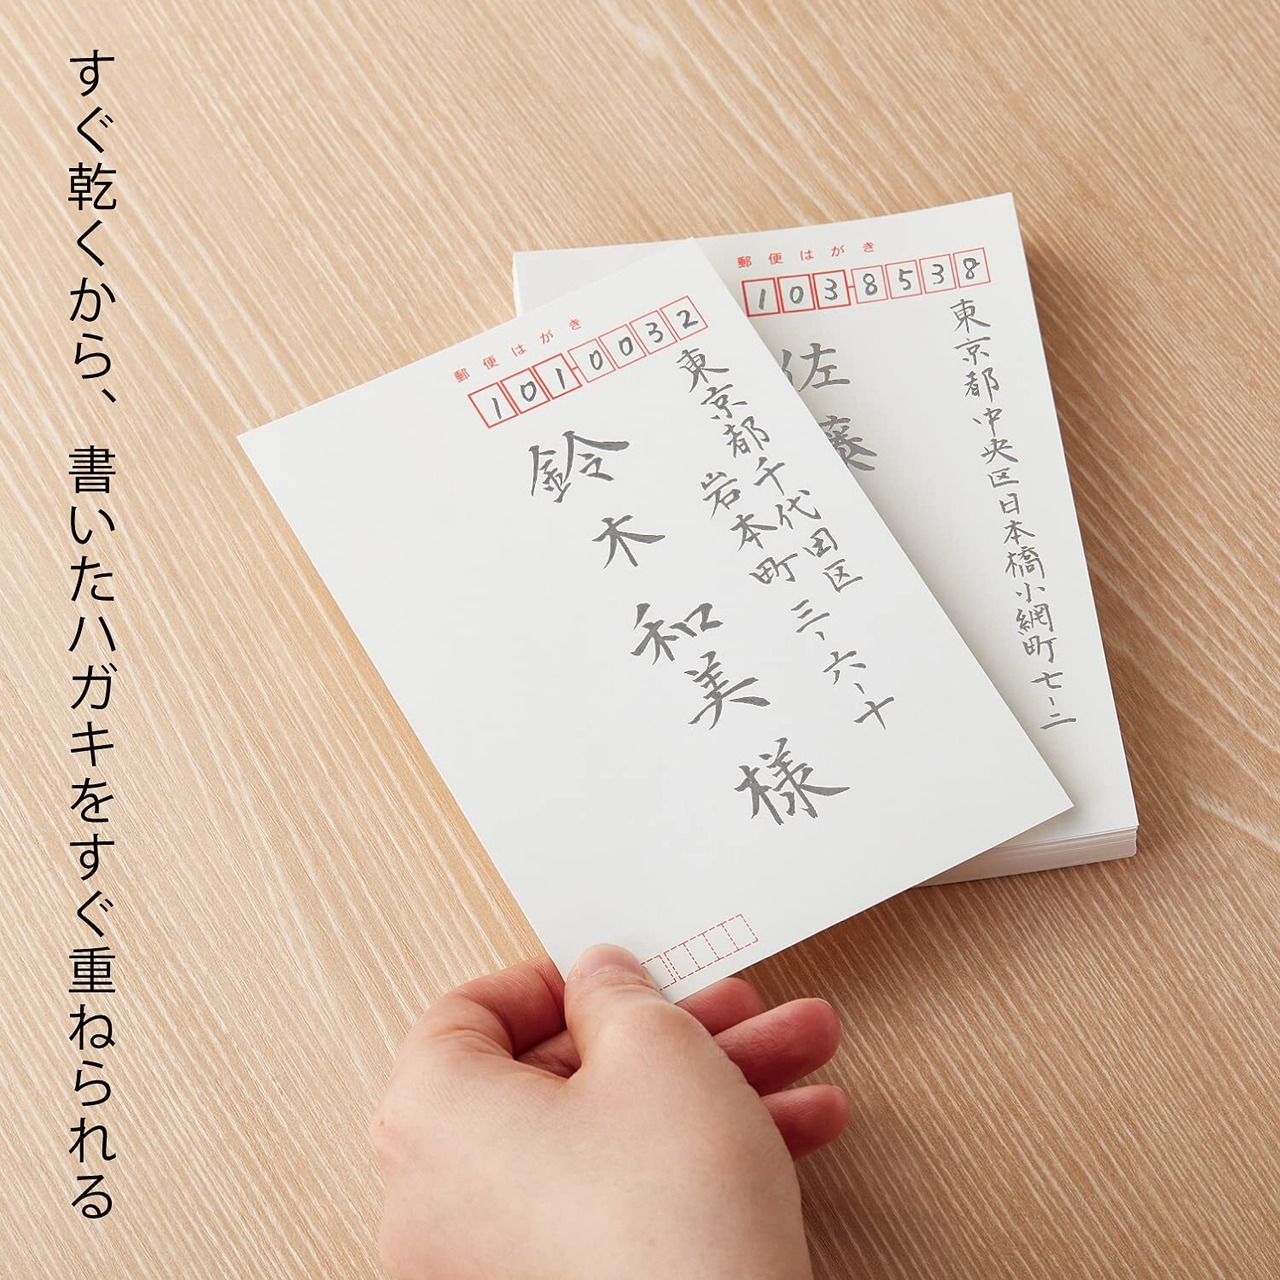 すぐ乾くから、書いたハガキをすぐ重ねられる
郵便はがき
101-0032
東京都千代田区
岩本町三-六-十
鈴木和美様
郵便はがき
103-8538
東京都中央区日本橋小網町七-二
佐藤